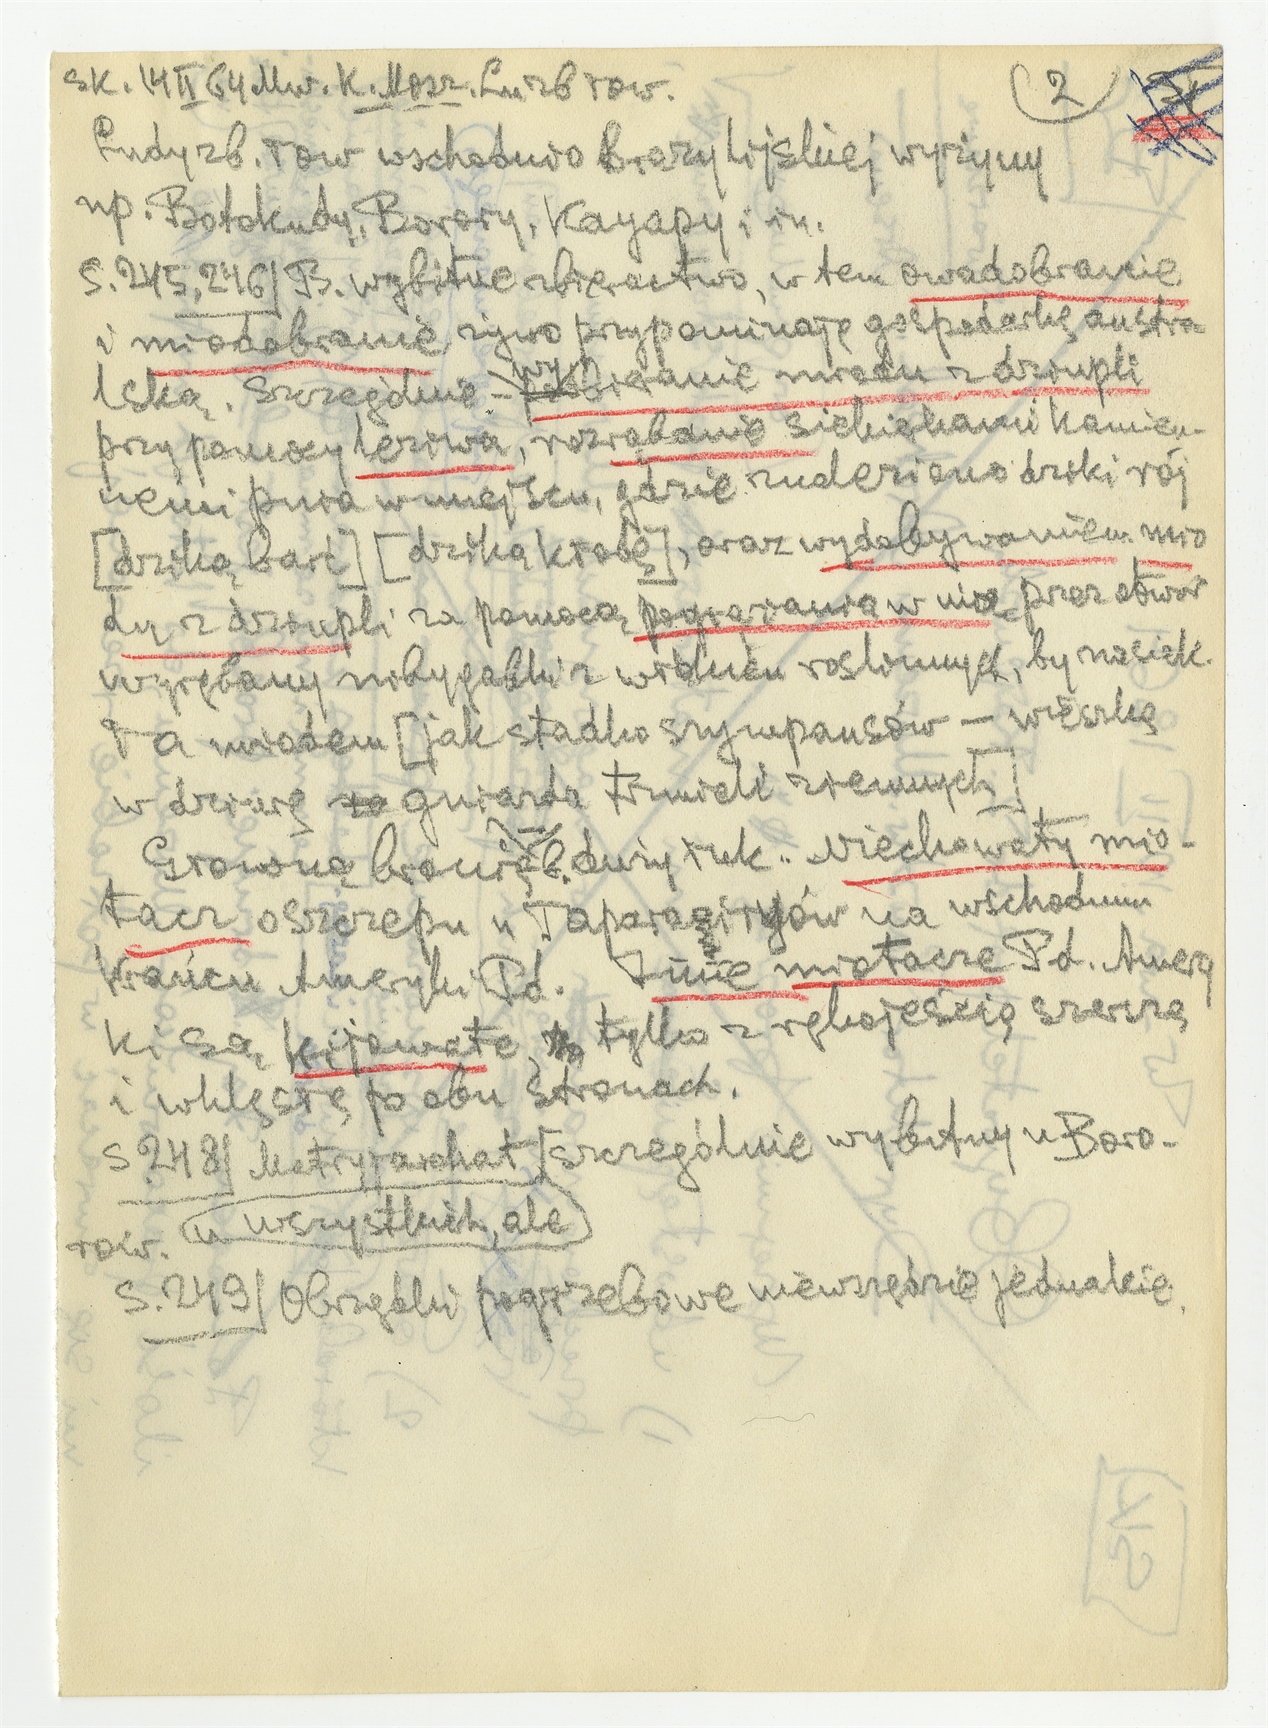 SK. 14 II 64 Mw. K. Mosz. Lu zb row. (2)
Ludy zb. row wschodnio brazylijskiej wyżyny
np. Botokudy, Borory, Kayapy i in.
S. 245, 246/ B. wybitne zbieractwo, w tem owadobranie
i miodobranie żywo przypominaję gospodarkę austra
lską. Szczególnie – wybieranie miodu z dziupli
przy pomocy leziwa, rozrąbanie siekierkami kamien-
nemi pnia w miejscu, gdzie znaleziono dziki rój
[dziką barć] [dziką kłodę], oraz wydobywaniem mio
du z dziupli za pomocą pogrążania w nią przez otwór
wyrębany nibygąbki z włókien roślinnych, by nasiek.
ła miodem [jak stadko szympansów – wieszkę
w dziurę gniazda trzmieli ziemnych]
Growną bronią b. duży łuk.. wiechowaty mio-
tacz oszczepu u Taparagiryów na wschodnim
krańcu Ameryki Pd. Inne miotacze Pd. Amery
ki są kijowate, tylko z rękojeścią szerszą
i wklęsłą po obu stronach.
S. 248/ Matryjarchat [szczególnie wybitny u Boro-
rów. u wszystkich, ale
S. 249/ Obrządki pogrzebowe niewszędzie jednakie.